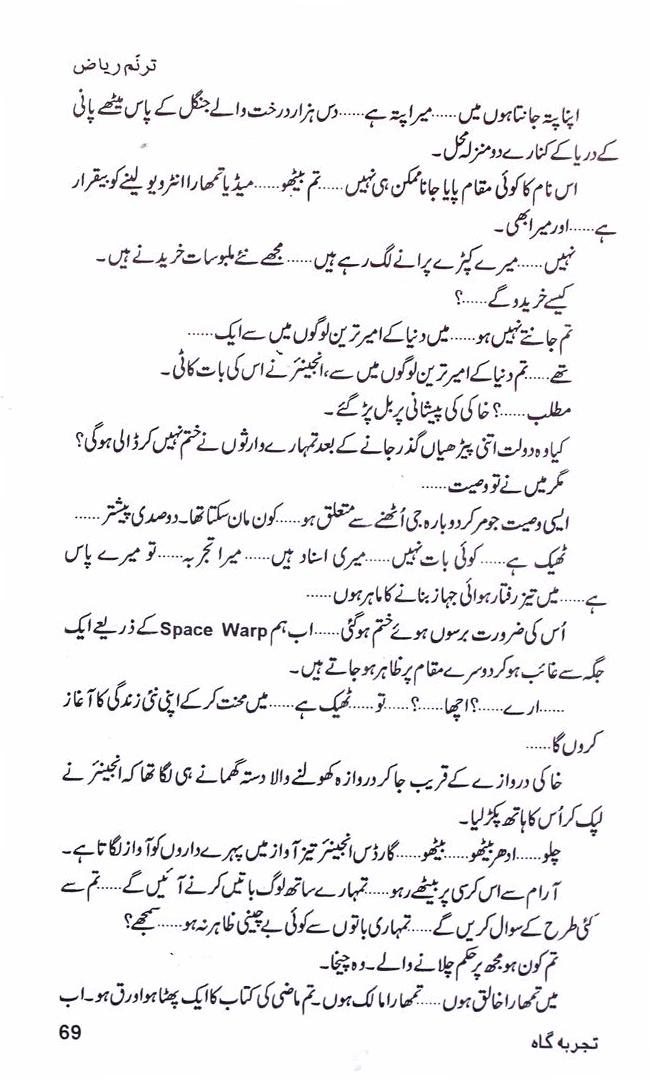 ترنّم ریاض
اپنا پتہ جانتا ہوں میں......میرا پتہ ہے......دس ہزار درخت والے جنگل کے پاس میٹھے پانی
کے دریا کے کنارے دو منزلہ محل۔
اس نام کا کوئی مقام پایا جانا ممکن ہی نہیں......تم بیٹھو......میڈیا تمھارا انٹرویو لینے کو بیقرار
ہے......اور میرا بھی۔
نہیں......میرے کپڑے پرانے لگ رہے ہیں......مجھے نئے ملبوسات خریدنے ہیں۔
کیسے خریدو گے......؟
تم جانتے نہیں ہو......میں دنیا کے امیر ترین لوگوں میں سے ایک......
تھے......تم دنیا کے امیر ترین لوگوں میں سے، انجینئر نے اس کی بات کاٹی۔
مطلب......؟ خاکی کی پیشانی پر بل پڑ گئے۔
کیا وہ دولت اتنی پیڑھیاں گذر جانے کے بعد تمہارے وارثوں نے ختم نہیں کر ڈالی ہوگی؟
مگر میں نے تو وصیت......
ایسی وصیت جو مر کر دوبارہ جی اُٹھنے سے متعلق ہو......کون مان سکتا تھا۔ دو صدی پیشتر......
ٹھیک ہے......کوئی بات نہیں......میری اسناد ہیں......میرا تجربہ......تو میرے پاس
ہے......میں تیز رفتار ہوائی جہاز بنانے کا ماہر ہوں......
اُس کی ضرورت برسوں ہوئے ختم ہوگئی......اب ہم Space Warp کے ذریعے ایک
جگہ سے غائب ہو کر دوسرے مقام پر ظاہر ہو جاتے ہیں۔
......ارے......؟ اچھا......؟......تو......ٹھیک ہے......میں محنت کر کے اپنی نئی زندگی کا آغاز
کروں گا......
خاکی دروازے کے قریب جا کر دروازہ کھولنے والا دستہ گھمانے ہی لگا تھا کہ انجینئر نے
لپک کر اُس کا ہاتھ پکڑ لیا۔
چلو......ادھر بیٹھو......بیٹھو......گارڈس انجینئر تیز آواز میں پہرے داروں کو آواز لگاتا ہے۔
آرام سے اس کرسی پر بیٹھے رہو......تمہارے ساتھ لوگ باتیں کرنے آئیں گے......تم سے
کئی طرح کے سوال کریں گے......تمہاری باتوں سے کوئی بے چینی ظاہر نہ ہو......سمجھے؟
تم کون ہو مجھ پر حکم چلانے والے۔ وہ چیخا۔
میں تمھارا خالق ہوں......تمھارا مالک ہوں۔ تم ماضی کی کتاب کا ایک پھٹا ہوا ورق ہو۔ اب
تجربہ گاہ
69